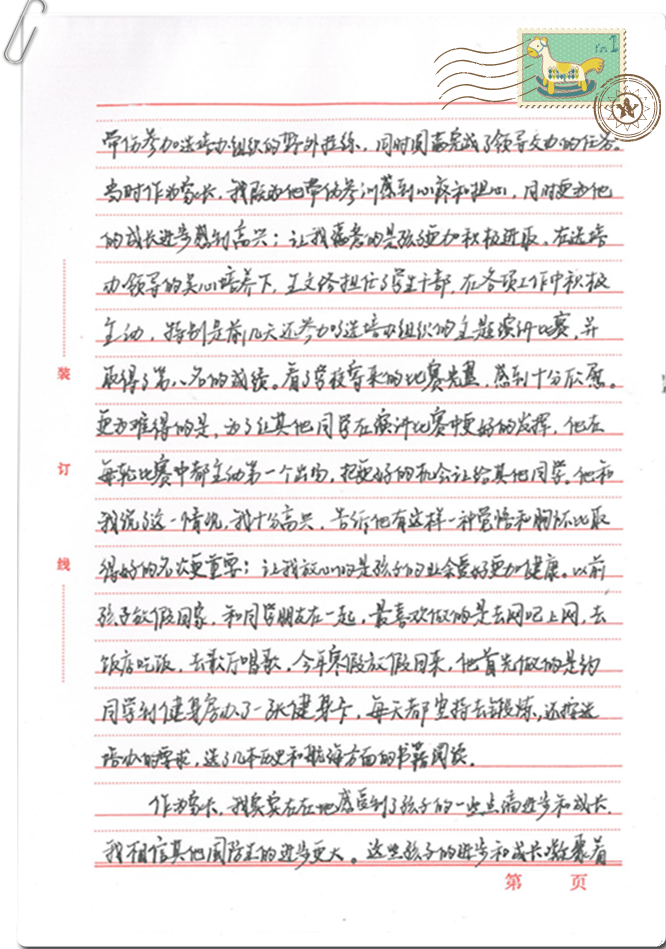 带伤参加选培办组织的野外拉练，同时圆满完成了领导交办的任务。
当时作为家长，我既为他带伤参训感到心疼和担心，同时更为他
的成长进步感到高兴；让我满意的是孩子更加积极进取。在选培
办领导的关心培养下，王文修担任了学生干部，在各项工作中积极
主动，特别是前几天还参加了选培办组织的主题演讲比赛，并
取得了第八名的成绩。看了学校寄来的比赛光盘，感到十分欣慰。
更为难得的是，为了让其他同学在演讲比赛中更好的发挥，他在
每轮比赛中都主动第一个出场，把更好的机会让给其他同学。他和
我说了这一情况，我十分高兴，告诉他有这样一种觉悟和胸怀比取
得好的名次更重要；让我放心的是孩子的业余爱好更加健康。以前
孩子放假回家，和同学朋友在一起，最喜欢做的是去网吧上网，去
饭店吃饭，去歌厅唱歌，今年寒假放假回来，他首先做的是约
同学到健身房办了一张健身卡，每天都坚持去锻炼，还按选
培办的要求，选了几本历史和航海方面的书籍阅读。
作为家长，我实实在在地感受到了孩子的一些点滴进步和成长，
我相信其他国防生的进步更大。这些孩子的进步和成长凝聚着
装
订
线
第 页